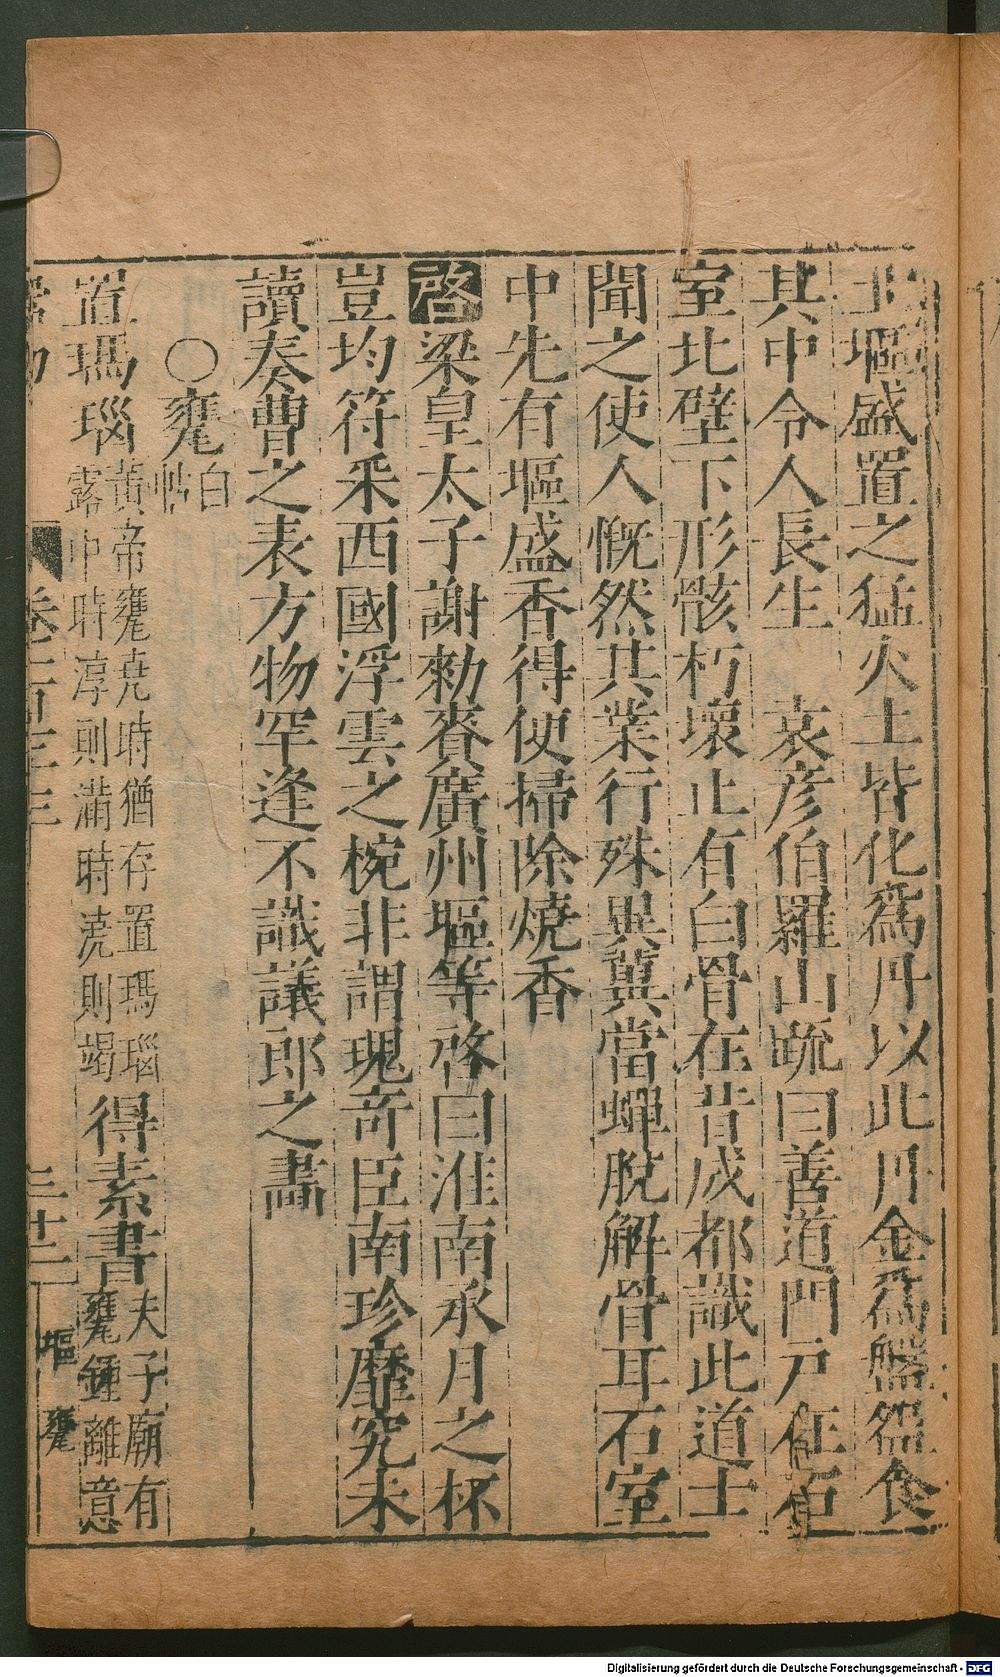 土塸盛置之猛火土皆化爲丹以此丹金爲盤盌食
其中令人長生　袁彦伯羅山疏曰善道門戸在石
室北壁下形骸朽壞止有白骨在昔成都識此道士
聞之使人慨然其業行殊異冀當蟬脫解骨耳石室
中先有塸盛香得便掃除燒香
啓梁皇太子謝勑賚廣州塸等啓曰淮南承月之杯
豈均符釆西國浮雲之椀非謂瑰竒臣南珍靡究未
讀奏曹之表方物罕逢不識議郎之畵
○甕白帖
置瑪瑙黃帝甕堯時猶存置瑪瑙
露中時淳則滿時澆則竭得素書夫子廟有
甕鍾離意
卷一百三十三
三十二
塸　甕
Digitalisierung gefördert durch die Deutsche Forschungsgemeinschaft - DFG